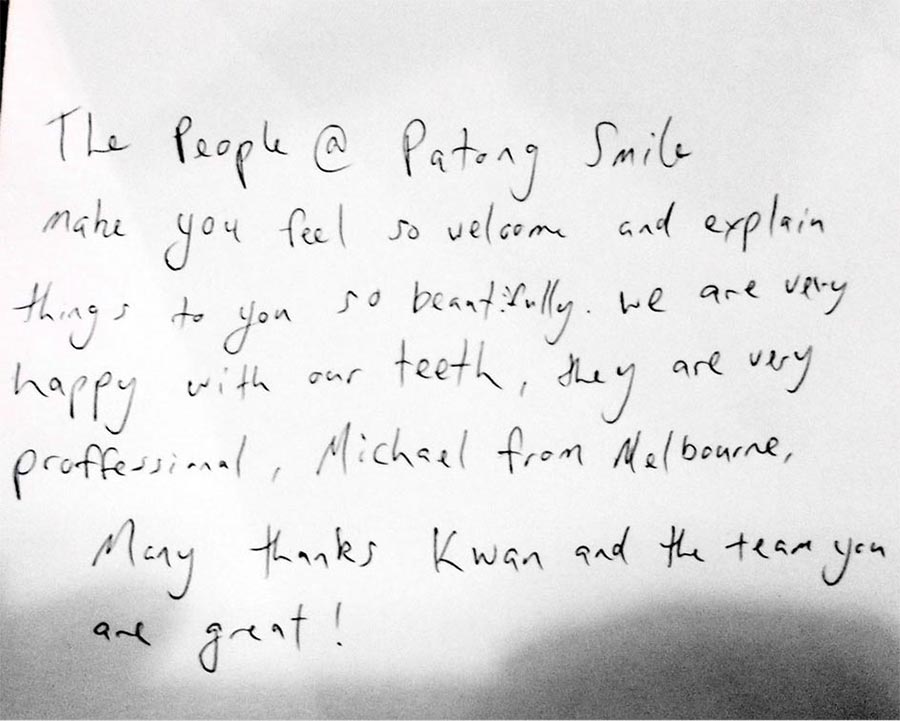 The People @ Patong Smile
make you feel so welcome and explain
things to you so beautifully. we are very
happy with our teeth, they are very
proffessional, Michael from Melbourne,
Many thanks Kwan and the team you
are great!